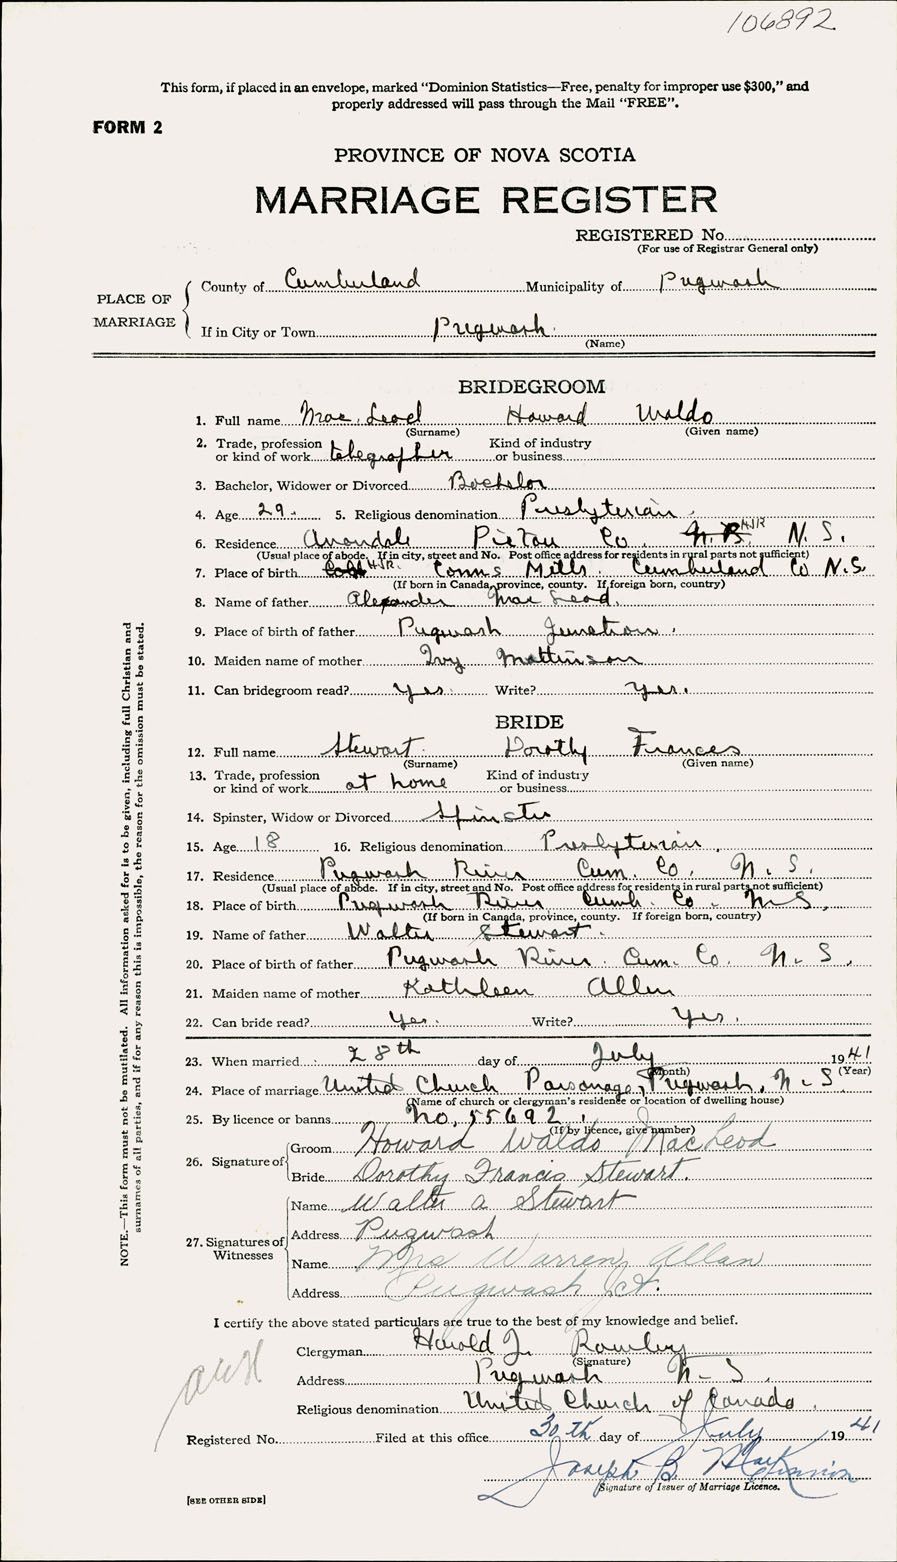 106892
This form, if placed in an envelope, marked “Dominion Statistics—Free, penalty for improper use $300,” and
properly addressed will pass through the Mail “FREE”.
FORM 2
PROVINCE OF NOVA SCOTIA
MARRIAGE REGISTER
REGISTERED No.
(For use of Registrar General only)
PLACE OF MARRIAGE
County of Cumberland Municipality of Pugwash
If in City or Town Pugwash
(Name)
BRIDEGROOM
1. Full name MacLeod Howard Waldo
(Surname) (Given name)
2. Trade, profession or kind of work telegrapher Kind of industry or business
3. Bachelor, Widower or Divorced Bachelor
4. Age 29. 5. Religious denomination Presbyterian
6. Residence Avondale Pictou Co. N.B. HJR N.S.
(Usual place of abode. If in city, street and No. Post office address for residents in rural parts not sufficient)
7. Place of birth HJR. Conns Mills Cumberland Co N.S.
(If born in Canada, province, county. If foreign born, country)
8. Name of father Alexander MacLeod.
9. Place of birth of father Pugwash Junction.
10. Maiden name of mother Ivy Mattinson
11. Can bridegroom read? Yes. Write? Yes.
BRIDE
12. Full name Stewart Dorothy Frances
(Surname) (Given name)
13. Trade, profession or kind of work at home Kind of industry or business
14. Spinster, Widow or Divorced Spinster
15. Age 18 16. Religious denomination Presbyterian.
17. Residence Pugwash River Cum. Co. N.S.
(Usual place of abode. If in city, street and No. Post office address for residents in rural parts not sufficient)
18. Place of birth Pugwash River Cumb. Co. N.S.
(If born in Canada, province, county. If foreign born, country)
19. Name of father Walter Stewart.
20. Place of birth of father Pugwash River. Cum. Co. N.S.
21. Maiden name of mother Kathleen Allen
22. Can bride read? Yes. Write? Yes.
23. When married 28th day of July 1941
(Month) (Year)
24. Place of marriage United Church Parsonage, Pugwash, N.S
(Name of church or clergyman's residence or location of dwelling house)
25. By licence or banns No. 55692.
(If by licence, give number)
26. Signature of Groom Howard Waldo MacLeod
Bride Dorothy Francis Stewart.
27. Signatures of Witnesses
Name Walter A Stewart
Address Pugwash
Name Mrs Warren Allan
Address Pugwash Jct.
I certify the above stated particulars are true to the best of my knowledge and belief.
Clergyman Harold J. Rowley
(Signature)
Address Pugwash N.S.
Religious denomination United Church of Canada.
Registered No. Filed at this office 30th day of July 1941
Joseph B. MacKinnon
Signature of Issuer of Marriage Licence.
[SEE OTHER SIDE]
NOTE.—This form must not be mutilated. All information asked for is to be given, including full Christian and
surnames of all parties, and if for any reason this is impossible, the reason for the omission must be stated.